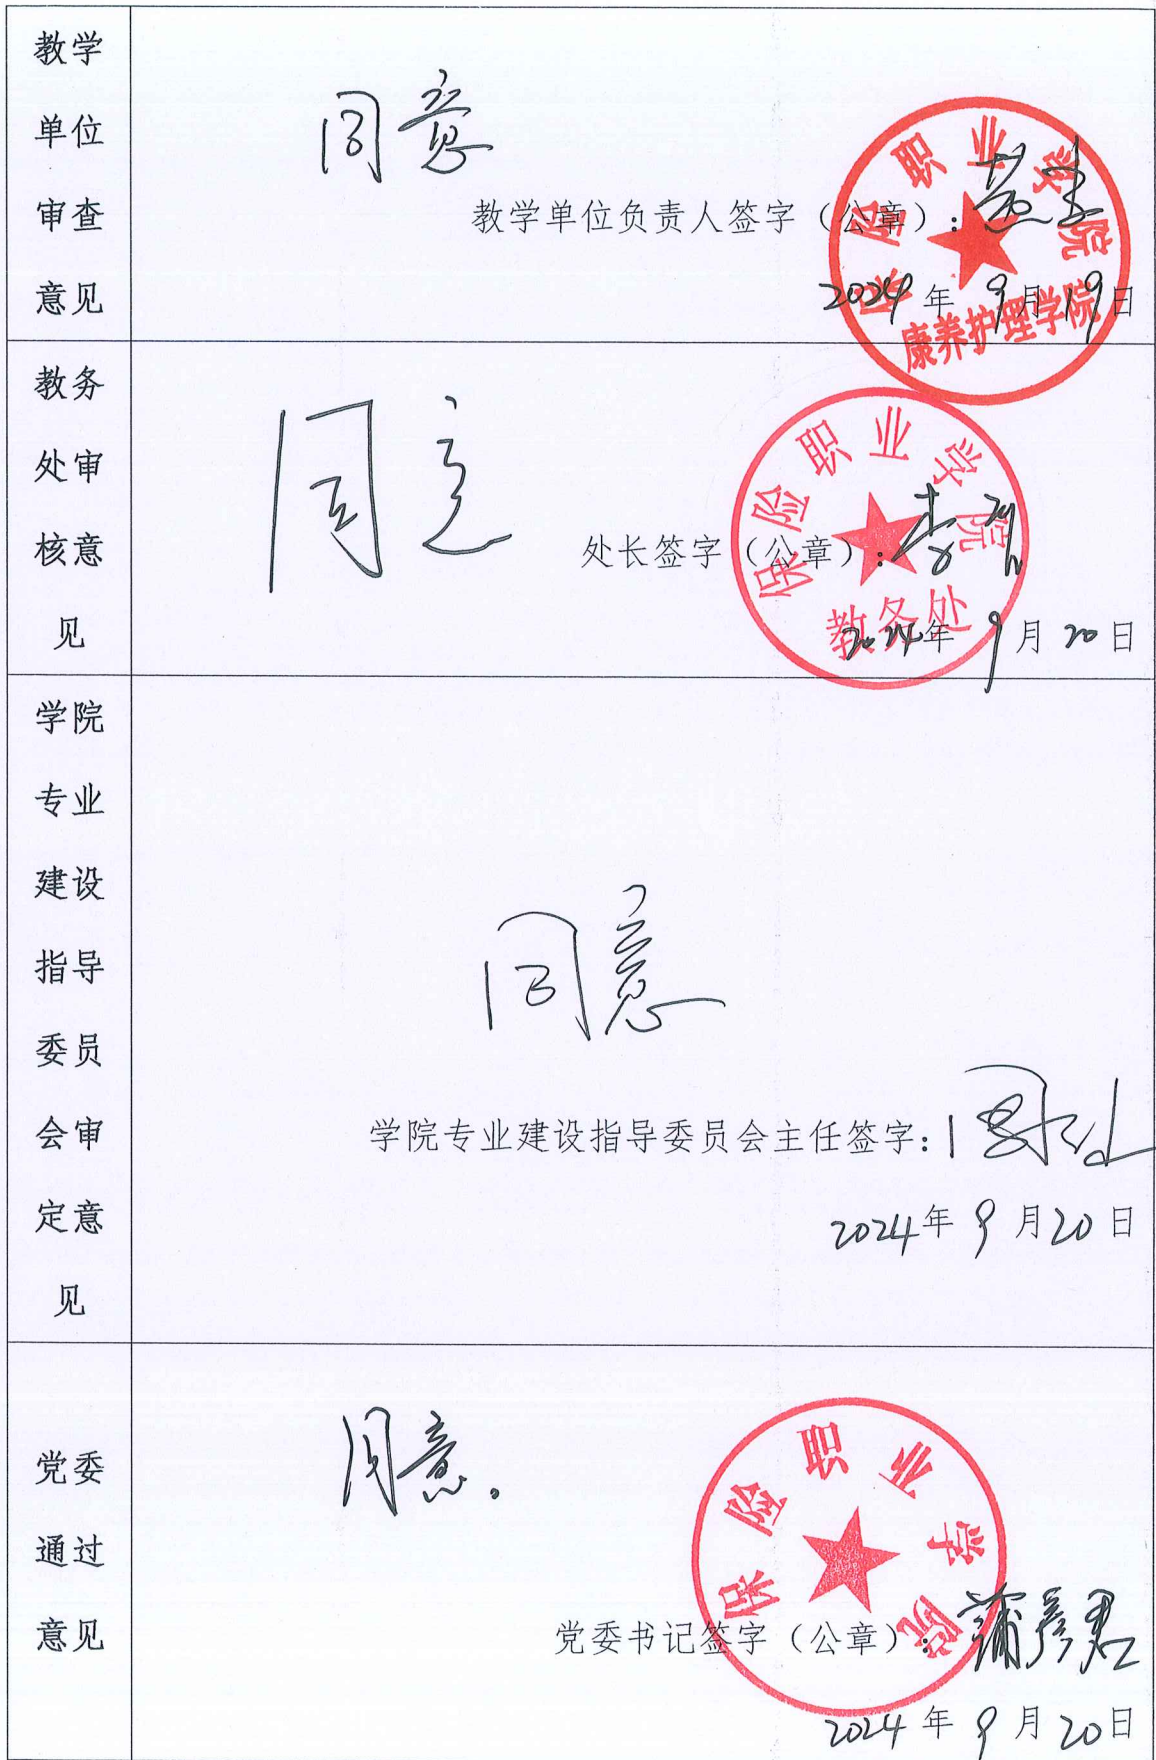 教学
单位
审查
意见
同意
教学单位负责人签字（公章）:
2024年 9月19日
保险职业学院
康养护理学院
教务
处审
核意
见
同意
处长签字（公章）:
2024年 9月20日
保险职业学院
教务处
学院
专业
建设
指导
委员
会审
定意
见
同意
学院专业建设指导委员会主任签字:
2024年 9月20日
党委
通过
意见
同意。
党委书记签字（公章）: 蒲彦君
2024年 9月20日
保险职业学院